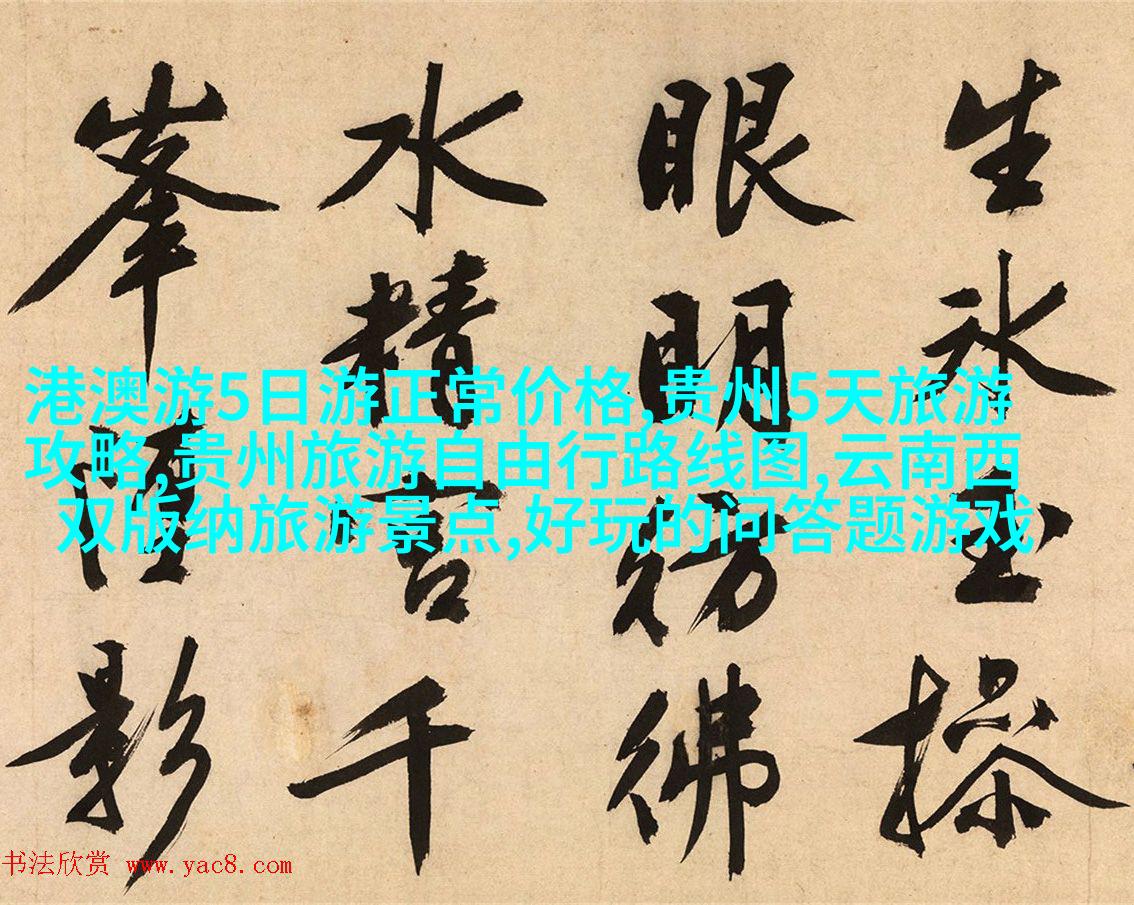 生氷玉操
眼明彷彿
水精宮千
峯影
港澳游5日游正常价格,贵州5天旅游
攻略,贵州旅游自由行路线图,云南西
双版纳旅游景点,好玩的问答题游戏
书法欣赏 www.yac8.com